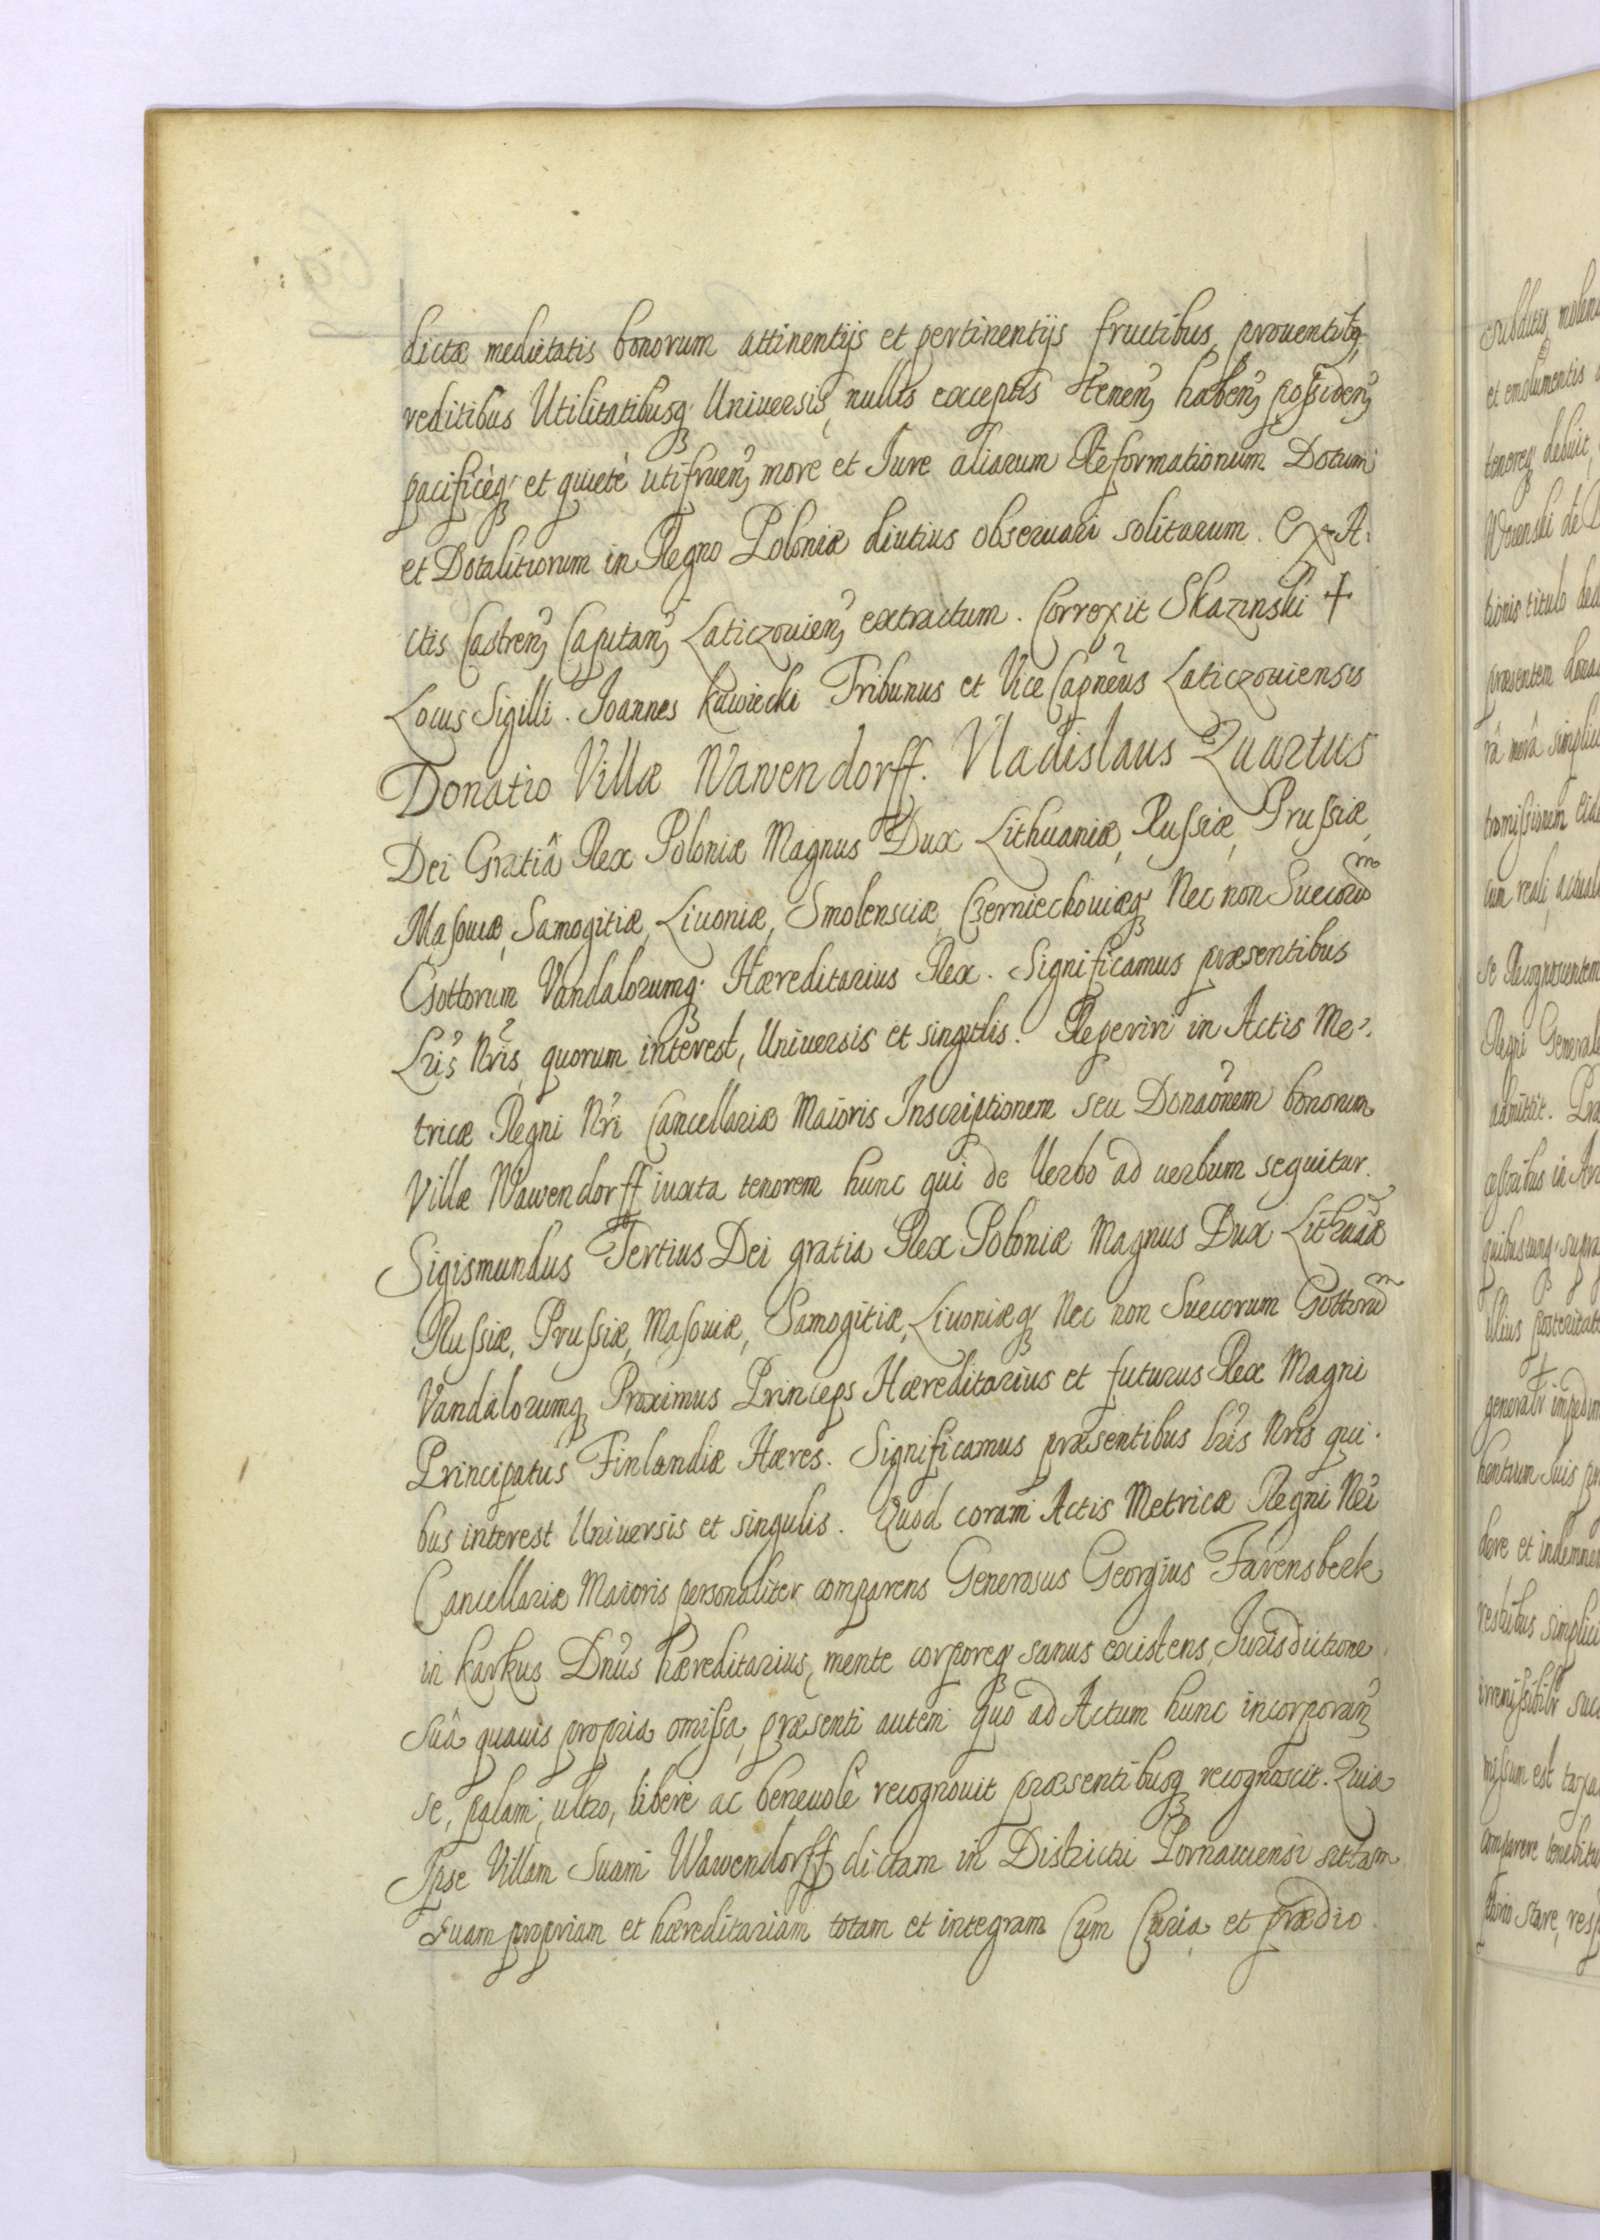 dictæ medietatis bonorum attinentijs et pertinentijs fructibus, prouentibq,
reditibus Utilitatibusq Uniuersis, nullis exceptis tenen, haben, possiden,
pacificèq et quietè utifruen, more et Iure aliarum Reformationum Dotum
et Dotalitiorum in Regno Poloniæ diutius obseruari solitarum. Ex A-
ctis Castren, Capitan, Laticzouien, extractum. Correxit Skarzinski +
Locus Sigilli. Joannes Kawiecki Tribunus et Vice Capnẽus Laticzouiensis
Donatio Villæ Wawendorff. Vladislaus Quartus
Dei Gratiâ Rex Poloniæ Magnus Dux Lithuaniæ, Russiæ, Prussiæ,
Masouiæ, Samogitiæ, Liuoniæ, Smolensciæ, Czerniechouiæq Nec non Suecorũm
Gottorum Vandalorumq. Hæreditarius Rex. Significamus præsentibus
Lris Nris, quorum interest, Uniuersis et singulis. Reperiri in Actis Me-
tricæ Regni Nri Cancellariæ Maioris Inscriptionem seu Donaõnem bonorum
Villæ Wawendorff iuxta tenorem hunc qui de Uerbo ad uerbum sequitur.
Sigismundus Tertius Dei gratia Rex Poloniæ Magnus Dux Lithuãæ
Russiæ, Prussiæ, Masouiæ, Samogitiæ, Liuoniæq Nec non Suecorum Gottorũm
Vandalorumq Proximus Princeps Hæreditarius et futurus Rex Magni
Principatus Finlandiæ Hæres. Significamus præsentibus lris Nris qui-
bus interest Uniuersis et singulis. Quod coram Actis Metricæ Regni Nri
Cancellariæ Maioris personaliter comparens Generosus Georgius Farensbek
in Karkus Dnus hæreditarius, mente corporeq sanus existens, Iurisdictione
Suâ quauis propria omissa, præsenti autem quo ad Actum hunc incorporan,
se, palam, ultro, libere ac beneuolè recognouit præsentibusq recognoscit. Quia
Ipse Villam Suam Wawendorff dictam in Districtu Pornauiensi sitam
suam propriam et hæreditariam totam et integram Cum Curia et prædio